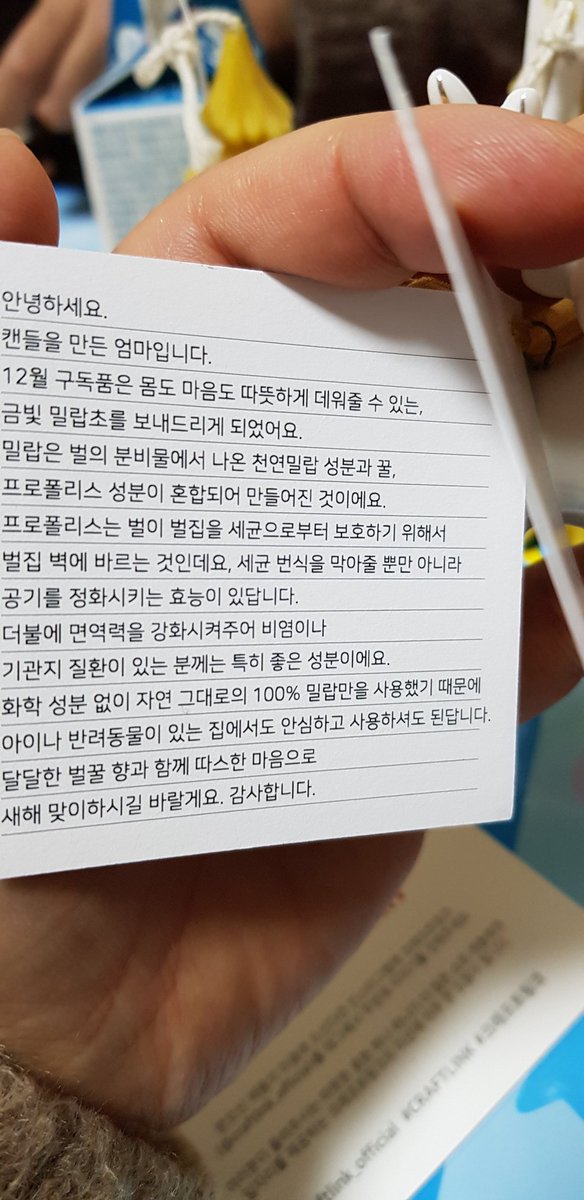 안녕하세요.
캔들을 만든 엄마입니다.
12월 구독품은 몸도 마음도 따뜻하게 데워줄 수 있는,
금빛 밀랍초를 보내드리게 되었어요.
밀랍은 벌의 분비물에서 나온 천연밀랍 성분과 꿀,
프로폴리스 성분이 혼합되어 만들어진 것이에요.
프로폴리스는 벌이 벌집을 세균으로부터 보호하기 위해서
벌집 벽에 바르는 것인데요, 세균 번식을 막아줄 뿐만 아니라
공기를 정화시키는 효능이 있답니다.
더불에 면역력을 강화시켜주어 비염이나
기관지 질환이 있는 분께는 특히 좋은 성분이에요.
화학 성분 없이 자연 그대로의 100% 밀랍만을 사용했기 때문에
아이나 반려동물이 있는 집에서도 안심하고 사용하셔도 된답니다.
달달한 벌꿀 향과 함께 따스한 마음으로
새해 맞이하시길 바랄게요. 감사합니다.
ftlink_official #CRAFTLINK